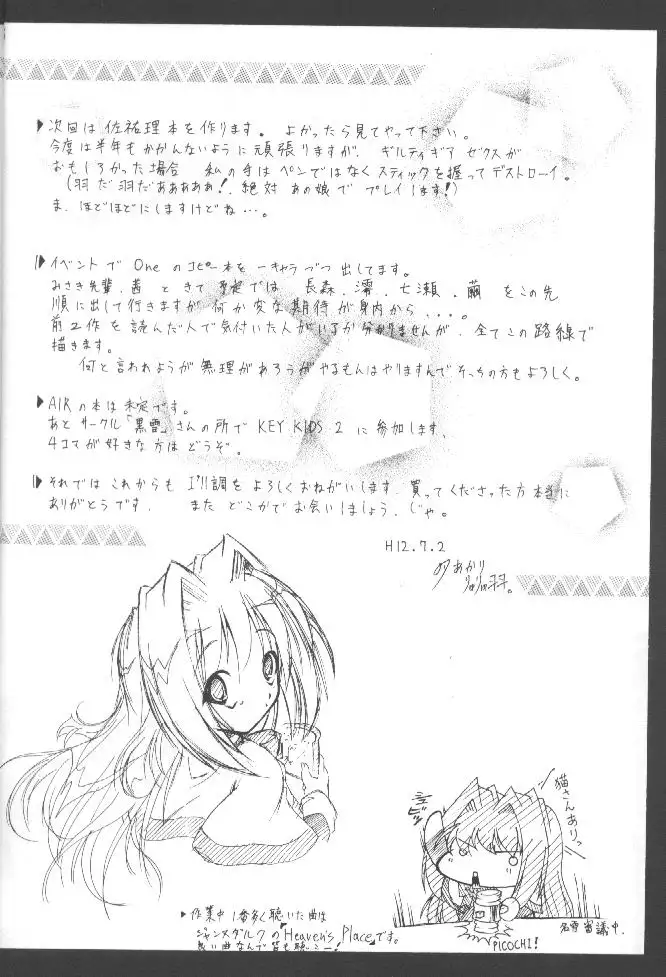 次回は佐祐理本を作ります。よかったら見てやって下さい。
今度は半年もかかんないように頑張りますが、ギルティギア ゼクスが
おもしろかった場合 私の手はペンではなくスティックを握ってデストローイ。
(羽だ羽だあああああ!絶対あの娘でプレイします!)
ま、ほどほどにしますけどね…。
イベントで Oneのコピー本を一キャラづつ出してます。
みさき先輩、茜ときて予定では、長森、澪、七瀬、繭をこの先
順に出して行きますが何か変な期待が身内から...。
前2作を読んだ人で気付いた人がいるか分かりませんが、全てこの路線で
描きます。
何と言われようが無理があろうがやるもんはやりますんでそっちの方もよろしく。
AIRの本は未定です。
あとサークル「黒雪」さんの所で KEY KIDS 2 に参加します。
4コマが好きな方はどうぞ。
それではこれからも I'll調をよろしくおねがいします。買ってくださった方本当に
ありがとうです。また どこかでお会いしましょう。じゃ。
H12.7.2
猫さんありっ
名雪審議中.
PICOCHI!
作業中1番多く聴いた曲は
ジャンヌダルクの「Heaven's Place」です。
良い曲なんで皆も聴こー!